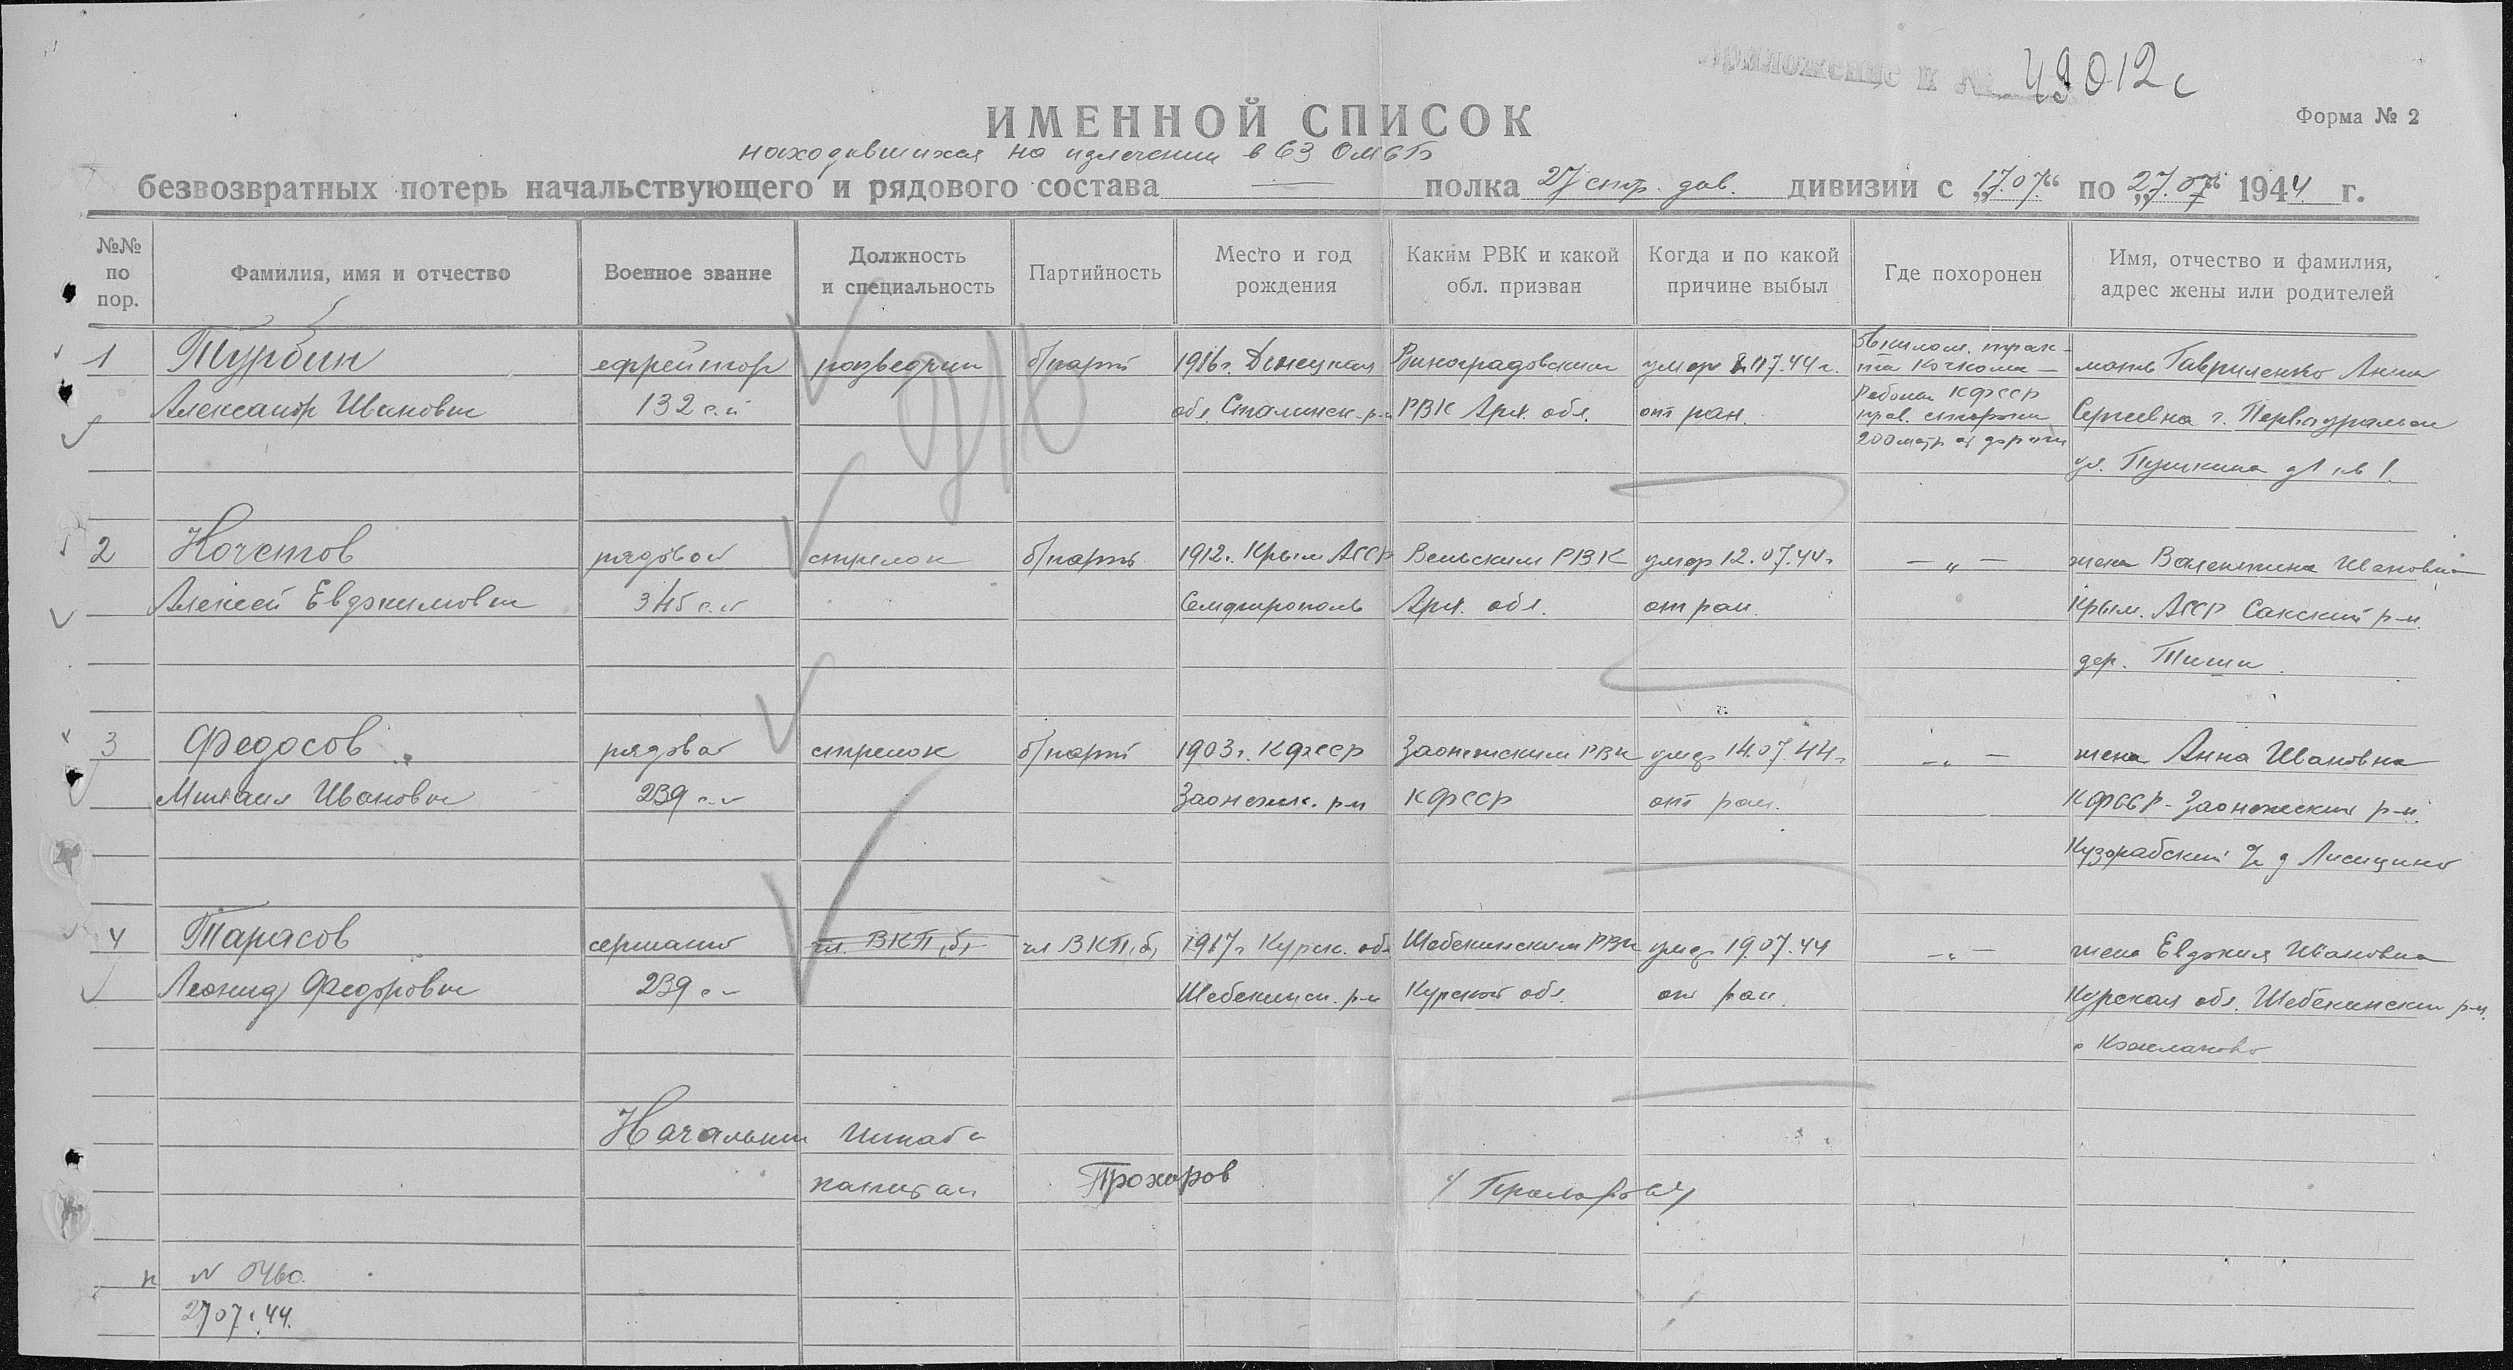 Приложение к № 49012с
ИМЕННОЙ СПИСОК
Форма № 2
находившихся на излечении в 63 ОМСБ
безвозвратных потерь начальствующего и рядового состава — полка 27 стр. див. дивизии с „17.07“ по „27.07“ 1944 г.
№№ по пор.
Фамилия, имя и отчество
Военное звание
Должность и специальность
Партийность
Место и год рождения
Каким РВК и какой обл. призван
Когда и по какой причине выбыл
Где похоронен
Имя, отчество и фамилия, адрес жены или родителей
1 Турбин ефрейтор разведчик б/парт Донецкая Виноградовским умер 07.44 г. мать Гавриленко Анна
Александр Иванович 132 с.п обл. Сталинск. р-н РВК Арх. обл. от ран. Сергеевна г. Первоуральск
ул. Пушкина д 1 кв 1.
километр трак-
та Кочкома —
Реболы КФССР
прав. сторона
200 метр от дороги
2 Кочетов рядовой стрелок б/парт 1912 г. Крым АССР Вельским РВК умер 12.07.44 г. — „ — жена Валентина Ивановна
Алексей Евдокимович 345 с.п Симферополь Арх. обл. от ран. Крым. АССР Сакский р-н
дер. Тиши
3 Федосов рядовой стрелок б/парт 1903 г. КФССР Заонежским РВК умер 14.07.44 г. — „ — жена Анна Ивановна
Михаил Иванович 239 с.п Заонежск. р-н КФССР от ран. КФССР - Заонежский р-н.
д Лисицино
4 Тарасов сержант чл. ВКП(б) чл ВКП(б) 1917 г Курск. обл Шебекинским РВК умер 19.07.44 — „ — жена Евдокия Ивановна
Леонид Федорович 239 с.п Шебекинск. р-н Курской обл. от ран. Курская обл. Шебекинский р-н.
с
Начальник Штаба
капитан Прохоров / Прохоров /
н № 0460.
27.07.44.